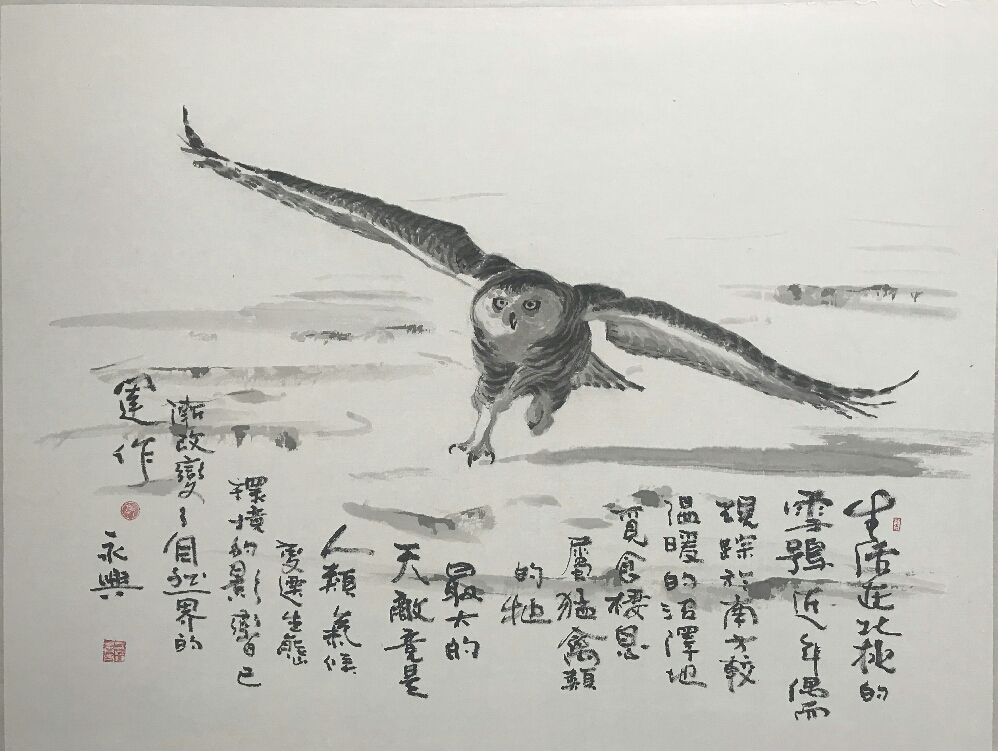 生活在北極的
雪鴞近年偶而
現踪於南方較
溫暖的沼澤地
覓食棲息
屬猛禽類
的牠
最大的
天敵竟是
人類氣候
變遷生態
環境的影響自己
漸改變了自然界的
運作
永興